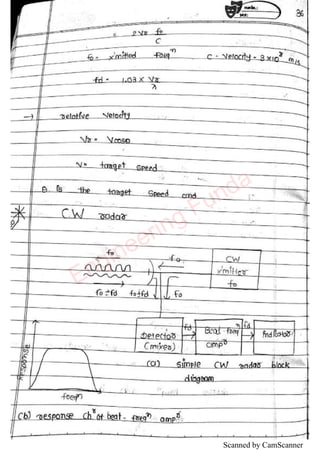 36
= 2 VR fo
C
fo = x'mitted freqⁿ C - Velocity = 3×10⁸ m/s
fd = 1.03 × VR
λ
→ relative velocity
VR = Vcosθ
V = target speed
θ is the target speed and
CW radar
fo
fo
CW
x'mitter
fo
fo±fd fo±fd fo
Detector
(mixer)
fd
Beat freqⁿ
ampʳ
fd
Indicator
(a) simple CW radar block
diagram
Response
freqⁿ
(b) response chʳ of beat-freqⁿ ampʳ
Engineering Funda
Scanned by CamScanner